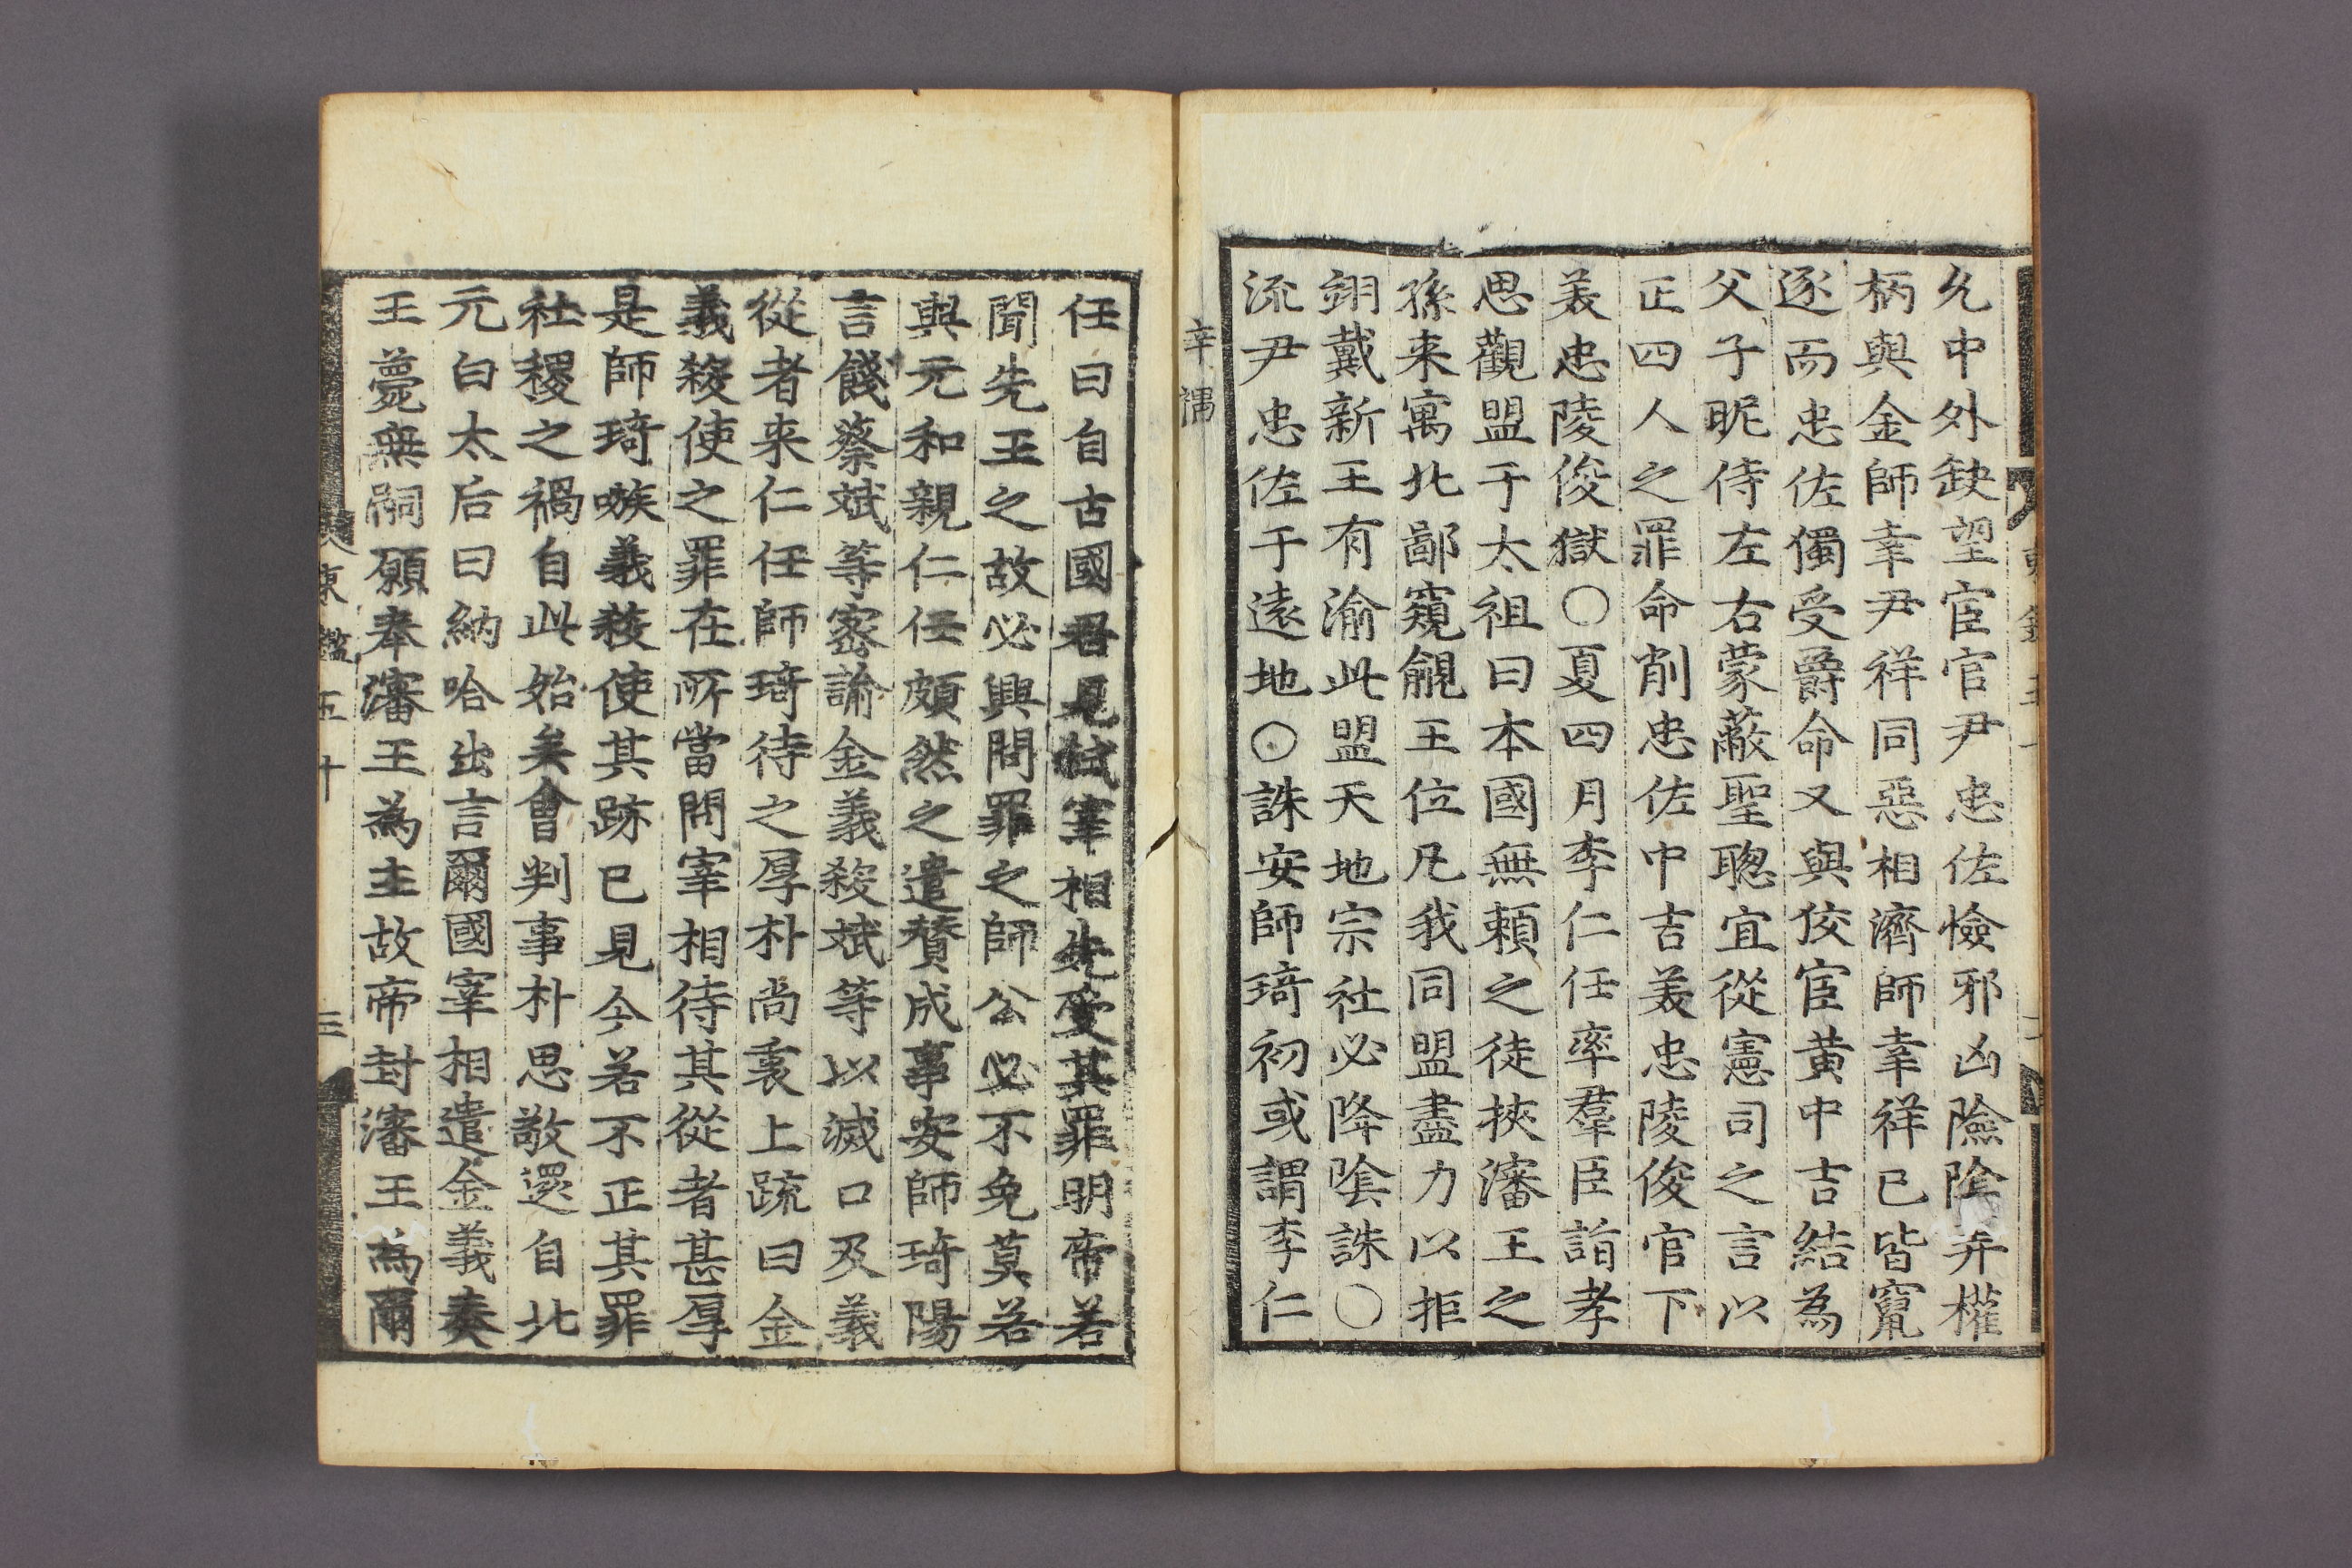 允中外缺望宦官尹忠佐憸邪凶險陰弄權
柄與金師幸尹祥同惡相濟師幸祥已皆竄
逐而忠佐獨受爵命又與佼宦黃中吉結為
父子昵侍左右蒙蔽聖聰宜從憲司之言以
正四人之罪命削忠佐中吉美忠陵俊官下
美忠陵俊獄○夏四月李仁任率羣臣詣孝
思觀盟于太祖曰本國無賴之徒挾瀋王之
孫来寓北鄙窺覦王位凡我同盟盡力以拒
翊戴新王有渝此盟天地宗社必降陰誅○
流尹忠佐于遠地○誅安師琦初或謂李仁
辛禑
任曰自古國君見弑宰相先受其罪明帝若
聞先王之故必興問罪之師公必不免莫若
與元和親仁任頗然之遣賛成事安師琦陽
言餞蔡斌等密諭金義殺斌等以滅口及義
從者来仁任師琦待之厚朴尚衷上疏曰金
義殺使之罪在所當問宰相待其從者甚厚
是師琦嗾義殺使其跡已見今若不正其罪
社稷之禍自此始矣會判事朴思敬還自北
元白太后曰納哈出言爾國宰相遣金義奏
王薨無嗣願奉瀋王為主故帝封瀋王為爾
東鑑五十 三